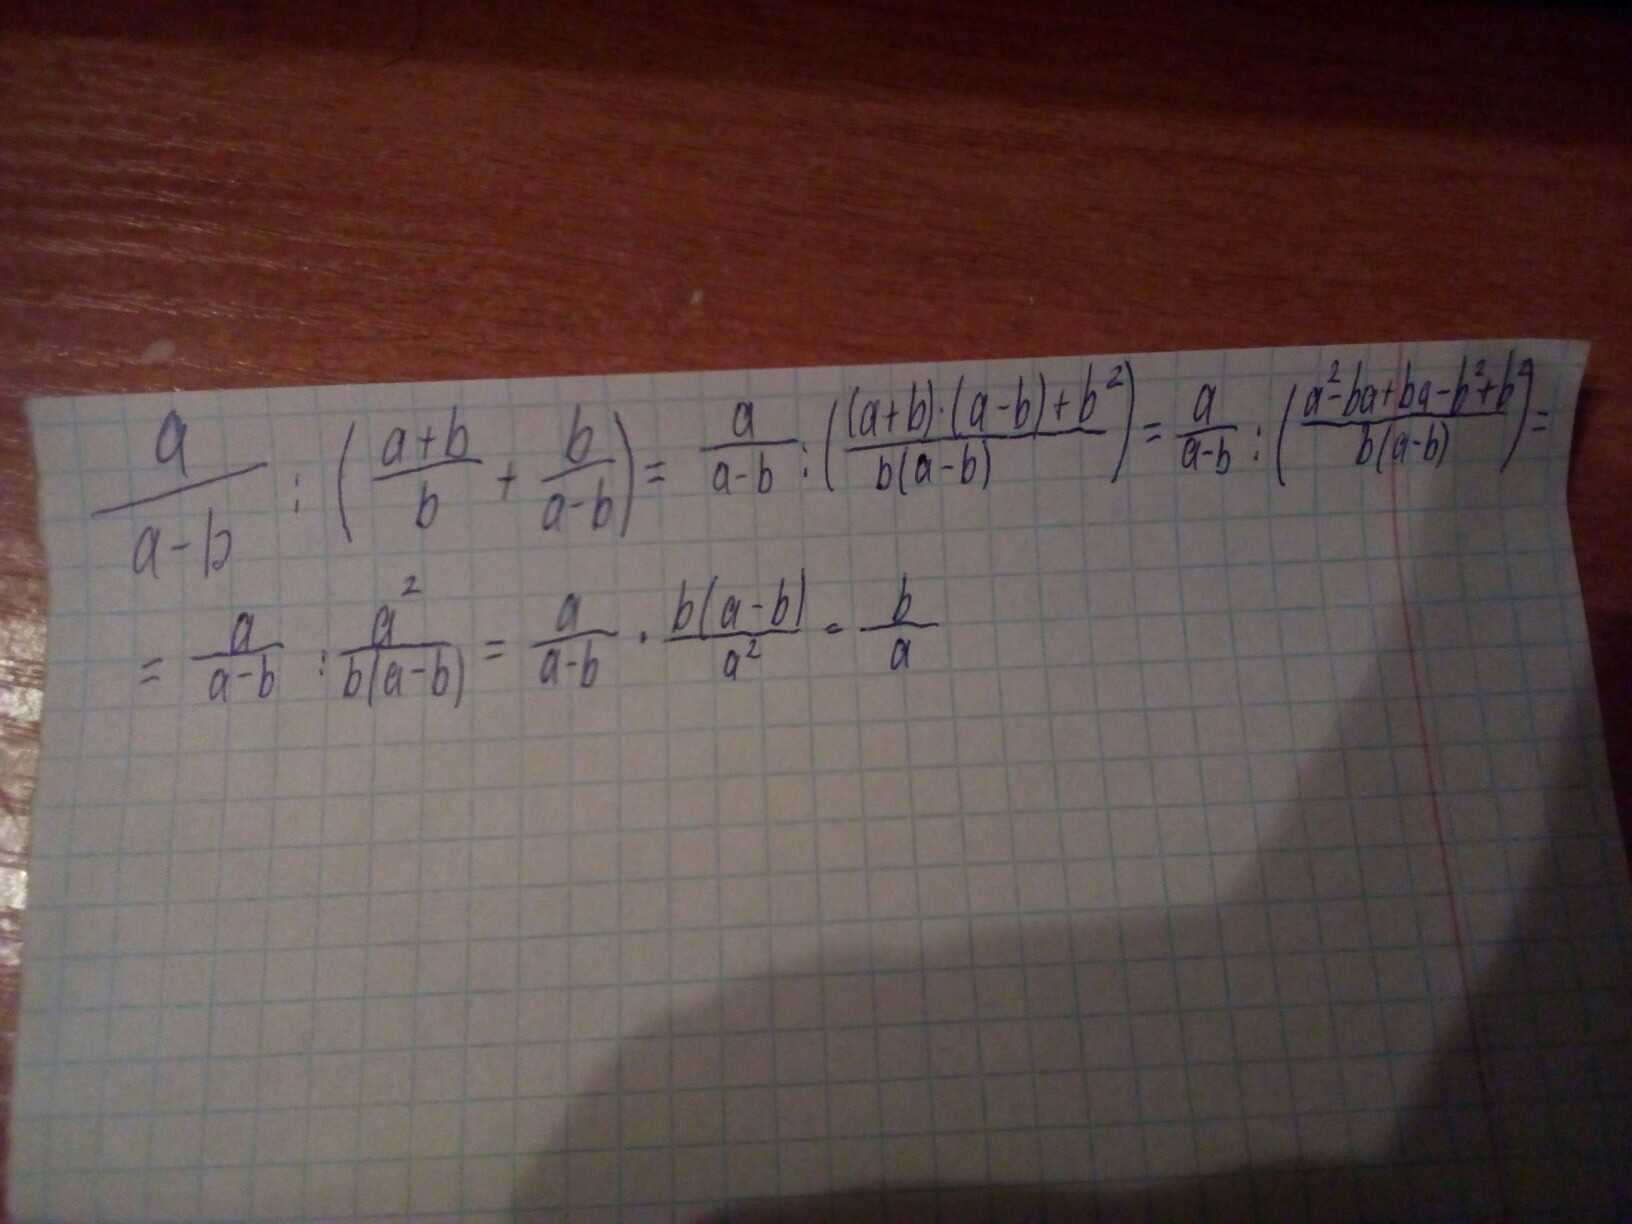 a/(a-b) : ((a+b)/b + b/(a-b)) = a/(a-b) : (((a+b)·(a-b)+b²)/(b(a-b))) = a/(a-b) : ((a²-ba+ba-b²+b²)/(b(a-b))) =
= a/(a-b) : a²/(b(a-b)) = a/(a-b) · b(a-b)/a² = b/a